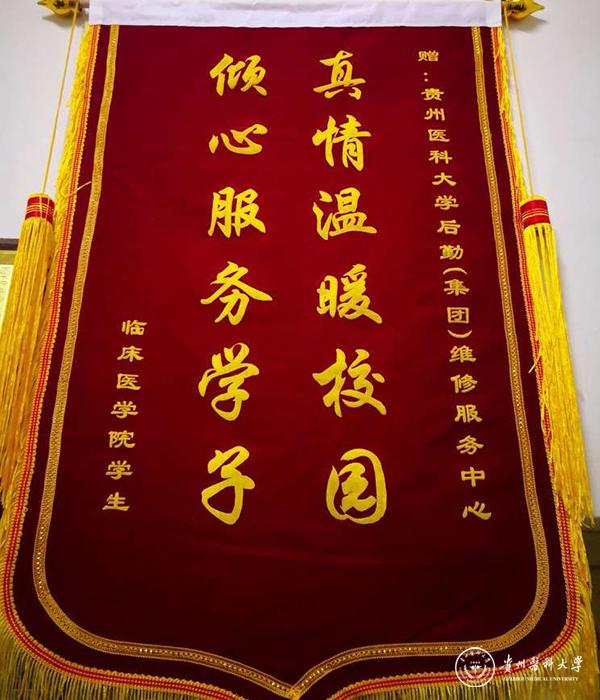 赠：贵州医科大学后勤(集团)维修服务中心
真情温暖校园
倾心服务学子
临床医学院学生
贵州医科大学
GUIZHOU MEDICAL UNIVERSITY